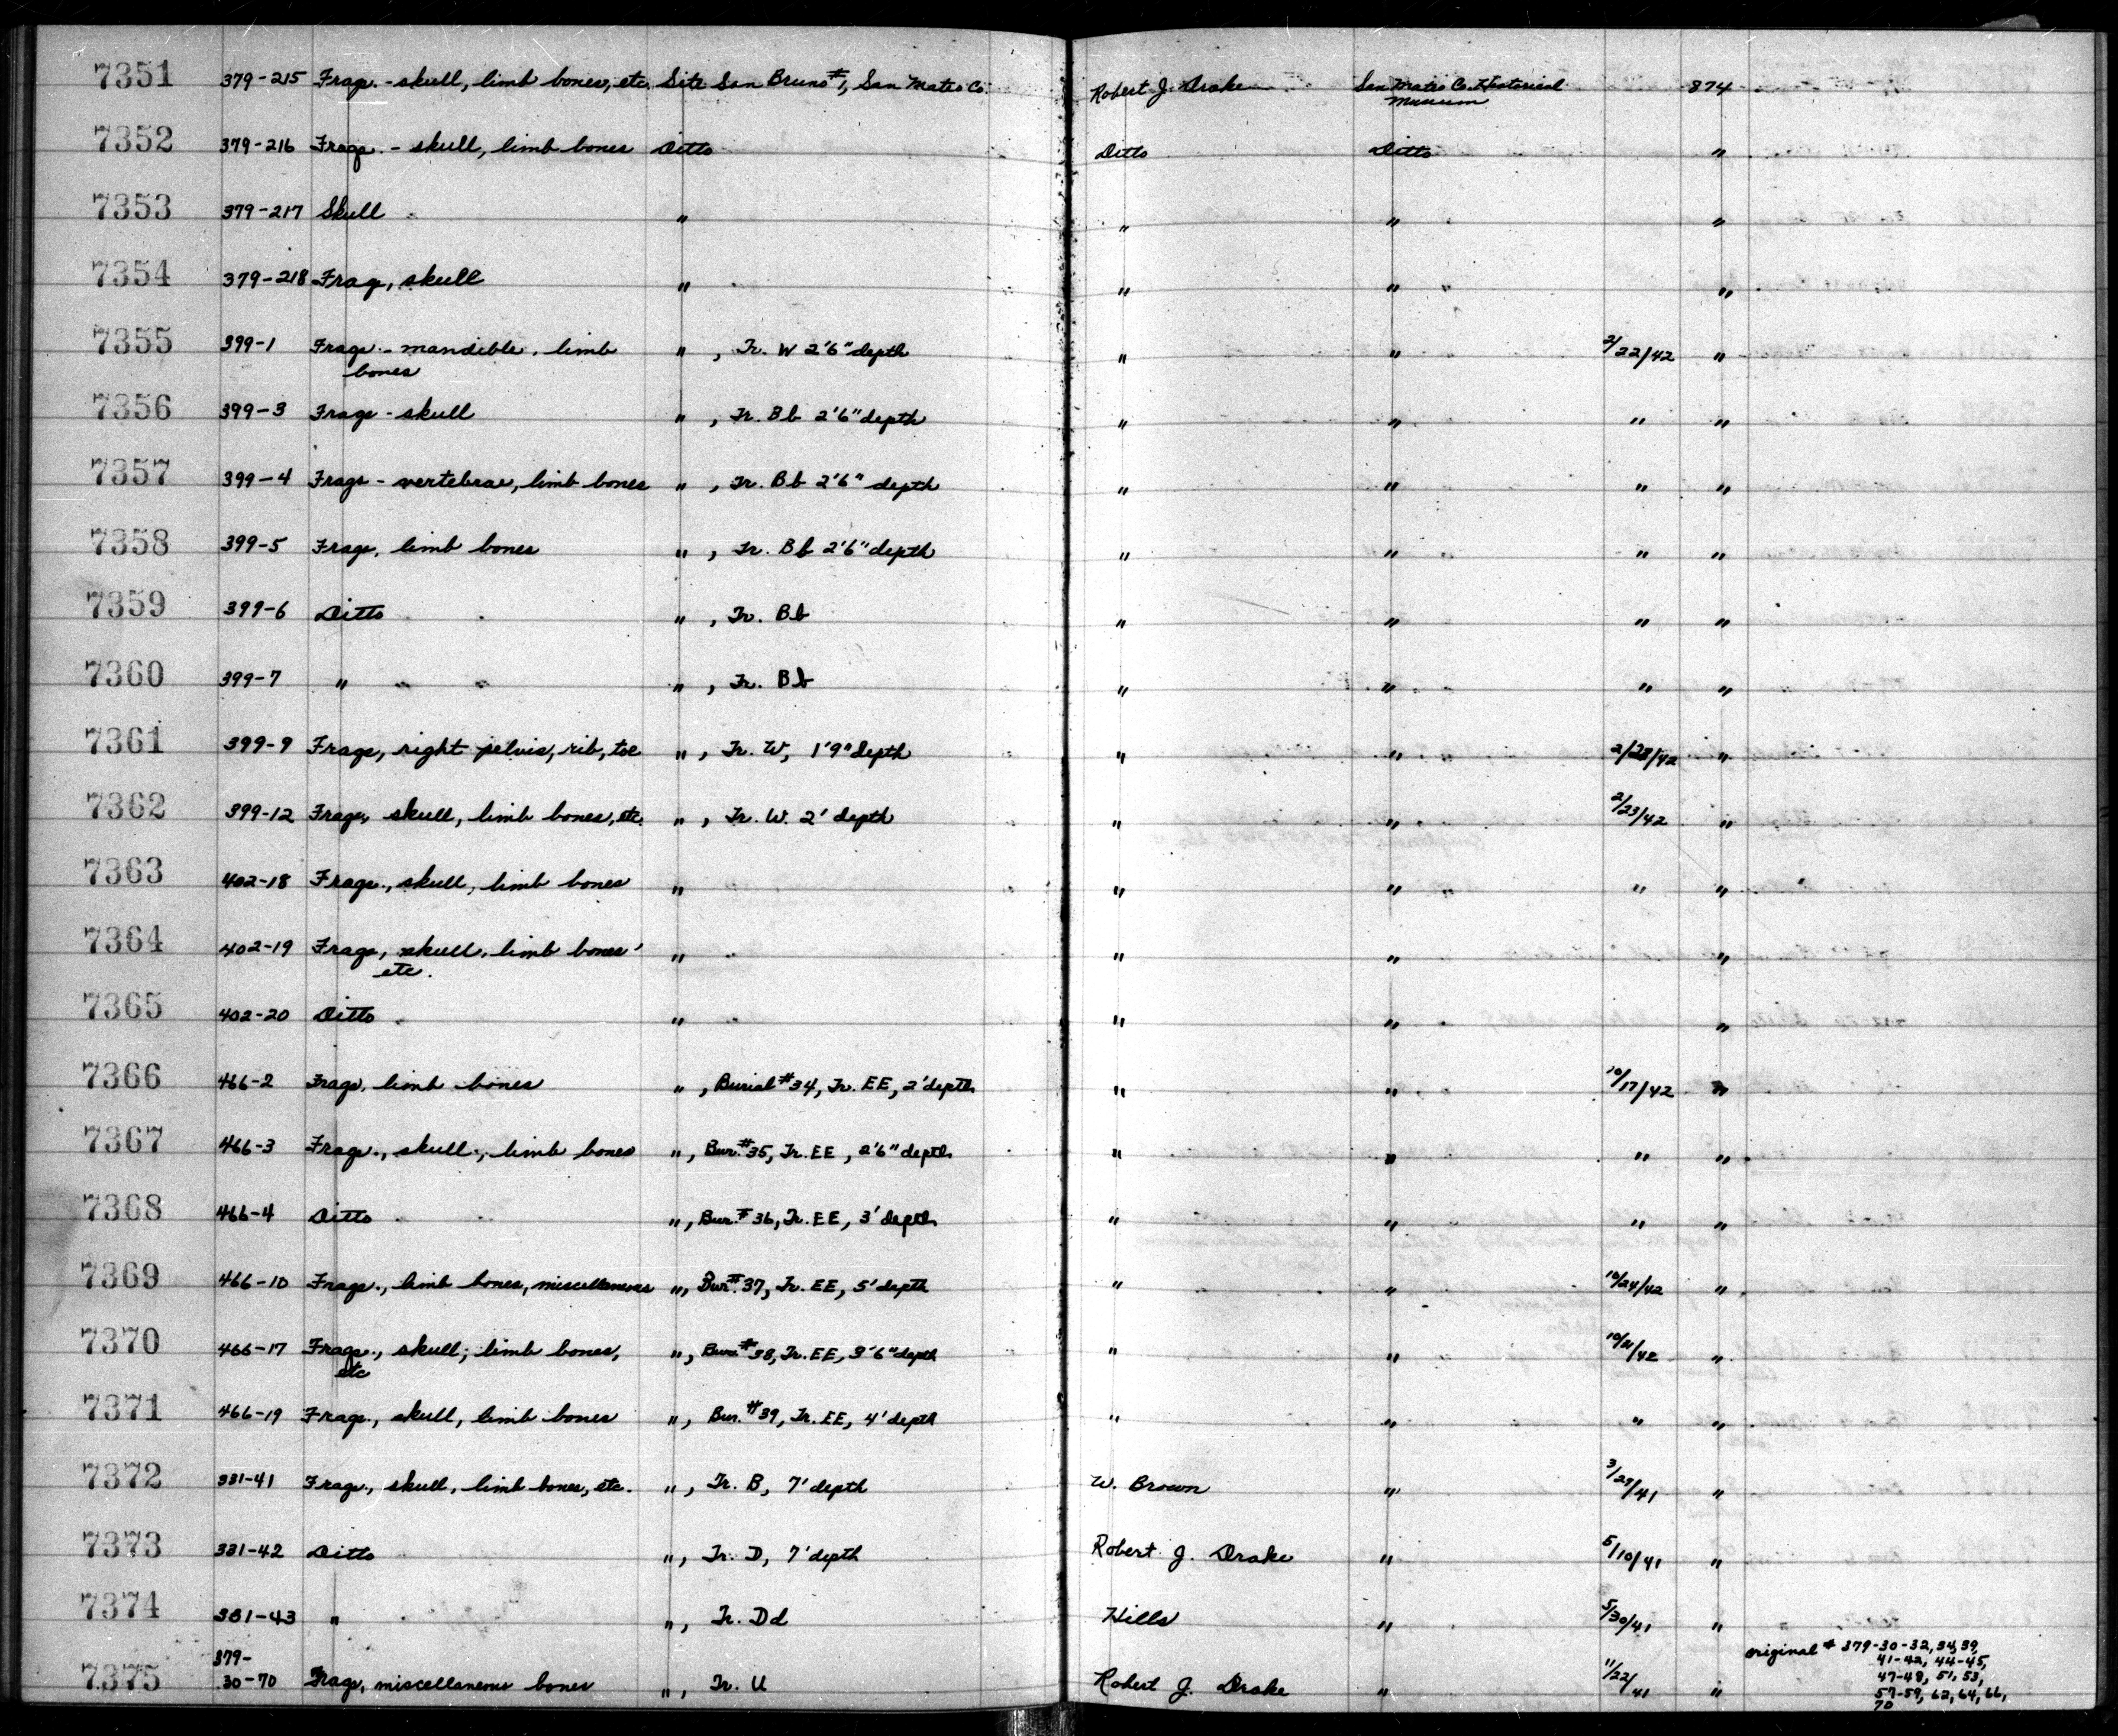 7351 379-215 Frags. - skull, limb bones, etc. Site San Bruno #1, San Mateo Co. Robert J. Drake San Mateo Co. Historical 874
Museum
7352 379-216 Frags. - skull, limb bones Ditto Ditto Ditto "
7353 379-217 Skull " " " "
7354 379-218 Frag, skull " " " "
7355 399-1 Frags. - mandible, limb " , Tr. W 2'6" depth " " 2/22/42 "
bones
7356 399-3 Frags - skull " , Tr. Bb 2'6" depth " " " "
7357 399-4 Frags - vertebrae, limb bones " , Tr. Bb 2'6" depth " " " "
7358 399-5 Frags, limb bones " , Tr. Bb 2'6" depth " " " "
7359 399-6 Ditto " , Tr. Bb " " " "
7360 399-7 " " , Tr. Bb " " " "
7361 399-9 Frags, right pelvis, rib, toe " , Tr. W, 1'9" depth " " 2/28/42 "
7362 399-12 Frags, skull, limb bones, etc. " , Tr. W. 2' depth " " 2/23/42 "
7363 402-18 Frags., skull, limb bones " " " " "
7364 402-19 Frags, skull, limb bones " " " "
etc.
7365 402-20 Ditto " " " "
7366 466-2 Frags, limb bones " , Burial #34, Tr. EE, 2' depth " " 10/17/42 "
7367 466-3 Frags., skull, limb bones ", Bur. #35, Tr. EE, 2'6" depth " " " "
7368 466-4 Ditto ", Bur. #36, Tr. EE, 3' depth " " " "
7369 466-10 Frags., limb bones, miscellaneous ", Bur. #37, Tr. EE, 5' depth " " 10/24/42 "
7370 466-17 Frags., skull, limb bones, ", Bur. #38, Tr. EE, 3'6" depth " " 10/21/42 "
etc
7371 466-19 Frags., skull, limb bones ", Bur. #39, Tr. EE, 4' depth " " " "
7372 331-41 Frags., skull, limb bones, etc. ", Tr. B, 7' depth W. Brown " 3/29/41 "
7373 331-42 Ditto ", Tr. D, 7' depth Robert J. Drake " 5/10/41 "
7374 381-43 " ", Tr. Dd Hills " 5/30/41 "
379- original # 379-30-32, 34, 39,
7375 30-70 Frags, miscellaneous bones ", Tr. U Robert J. Drake " 11/22/41 " 41-42, 44-45,
47-48, 51, 53,
57-59, 62, 64, 66,
70